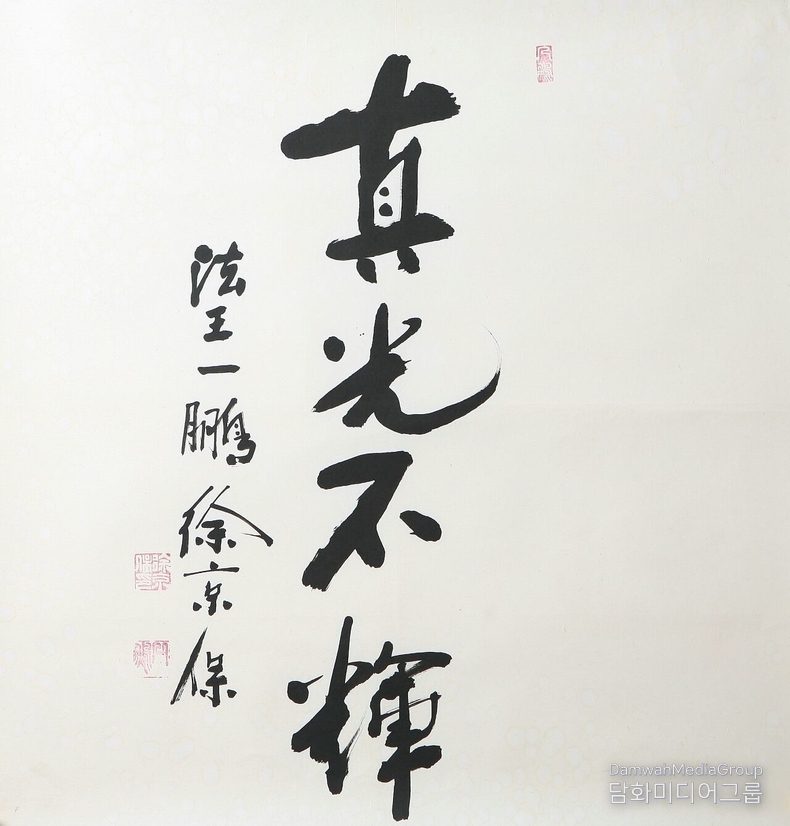 真光不輝
法王一鵬徐京保
DamwahMediaGroup
담화미디어그룹